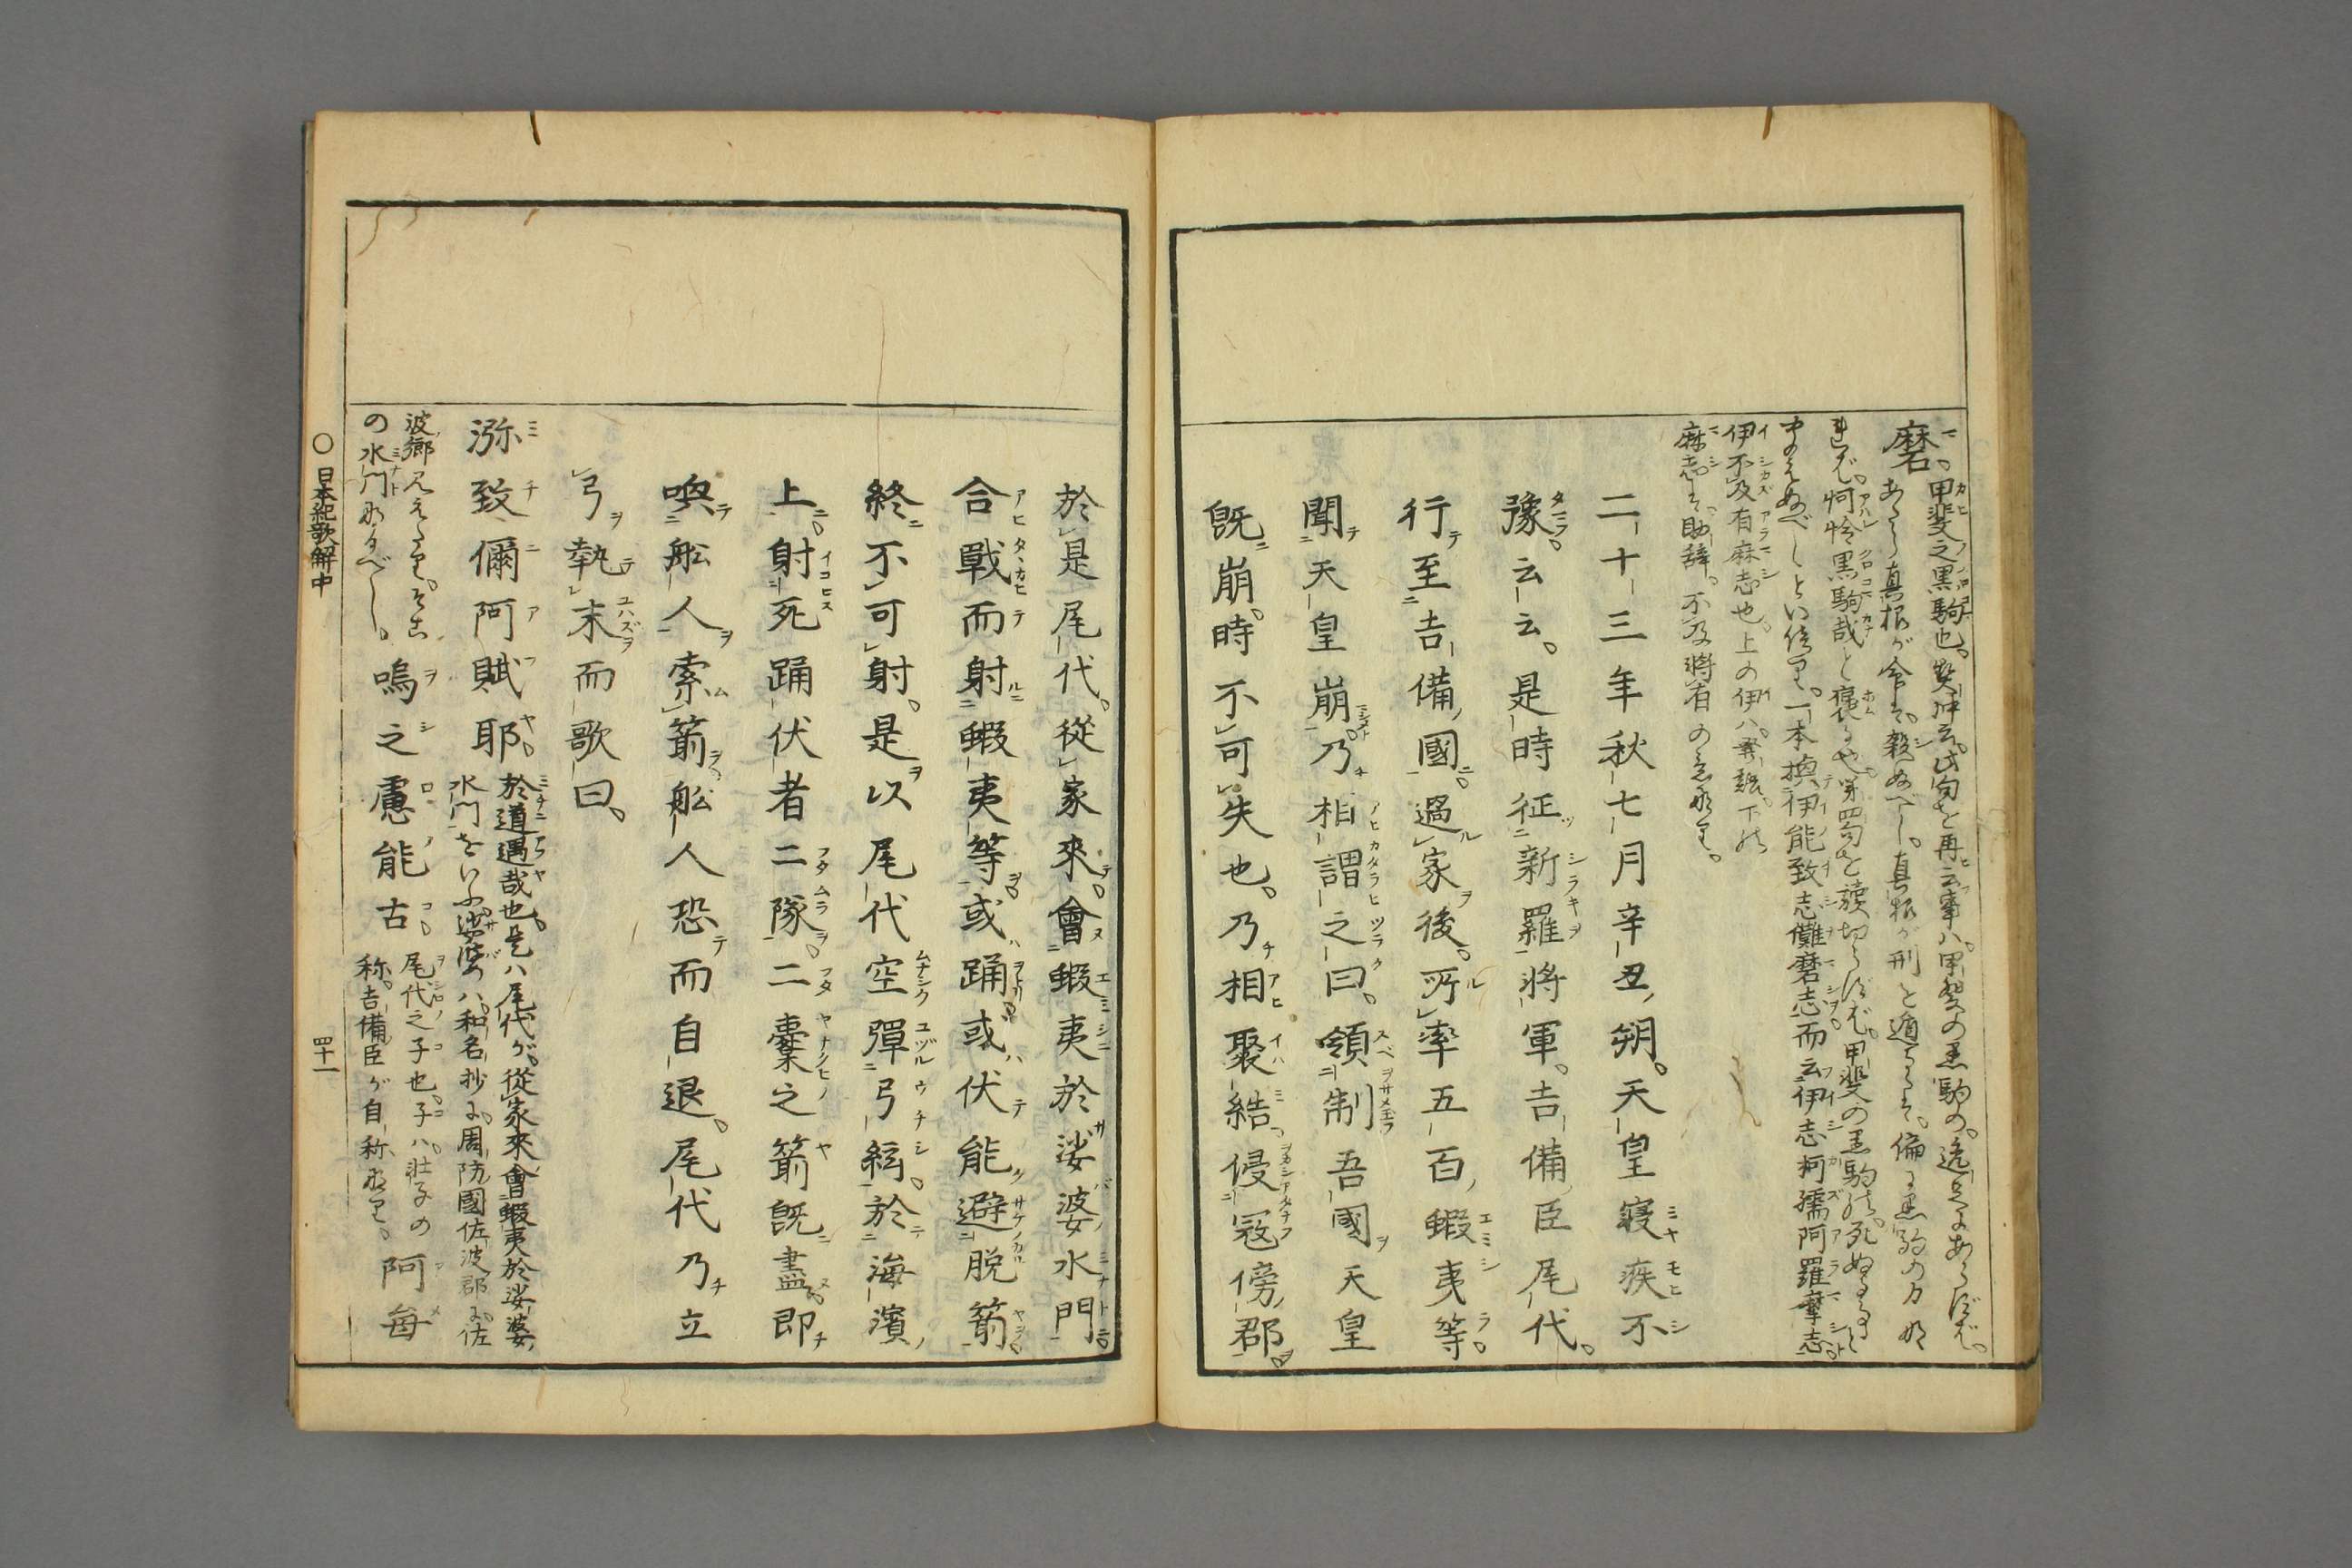 磨。甲斐之黒駒也。契沖云。此句を再云事ハ。甲斐の黒駒の。逸足にあらずば。
あたら真根が命を。殺ぬべし。真根が刑を遁るゝを。偏に黒駒の力
ぞ。怜黒駒哉と褒る也。第四句を讀切らずば。甲斐の黒駒
一本換伊能致志儺磨志而云伊志柯孺阿羅摩志。
伊不及有麻志也。上の伊ハ。發語。下の
麻志を助辞。不及將有の意なり。
二十三年秋七月辛丑朔。天皇寝疾不
豫。云云。是時征新羅將軍。吉備臣尾代。
行至吉備國過家後。所率五百蝦夷等。
聞天皇崩。乃相謂之曰。領制吾國天皇
既崩。時不可失也。乃相聚結侵冦傍郡。
於是尾代。從家來。會蝦夷於娑婆水門。
合戰而射蝦夷等。或踊或伏能避脱箭。
終不可射。是以尾代空彈弓絃。於海濱
上。射死踊伏者二隊。二櫜之箭既盡。即
喚船人索箭。船人恐而自退。尾代乃立
弓執末而歌曰。
瀰致儞阿賦耶。於道遇哉也。是ハ尾代が。從家來會蝦夷於娑婆
水門をいふ。娑婆ハ。和名抄に。周防國佐波郡に。佐
波郷見えたり。そこ
の水門なるべし。嗚之慮能古。尾代之子也。子ハ。壮子の
称。吉備臣が自称なり。阿毎
〇日本紀歌解中
四十一